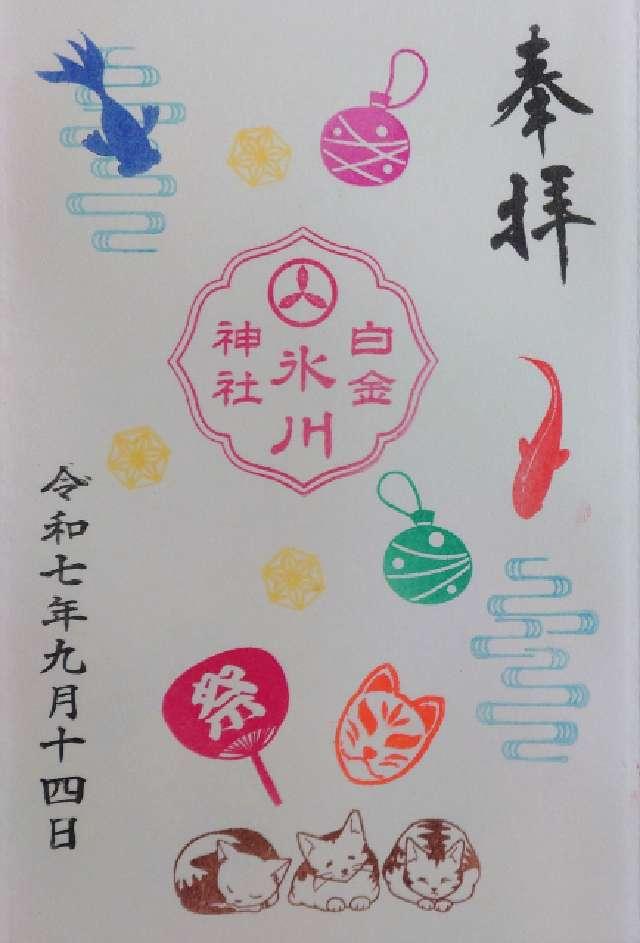 奉拝
白金
氷川
神社
祭
令和七年九月十四日